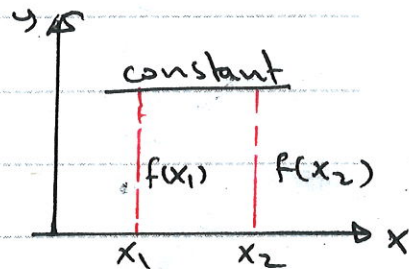 y
constant
f(x₁) f(x₂)
x
x₁ x₂